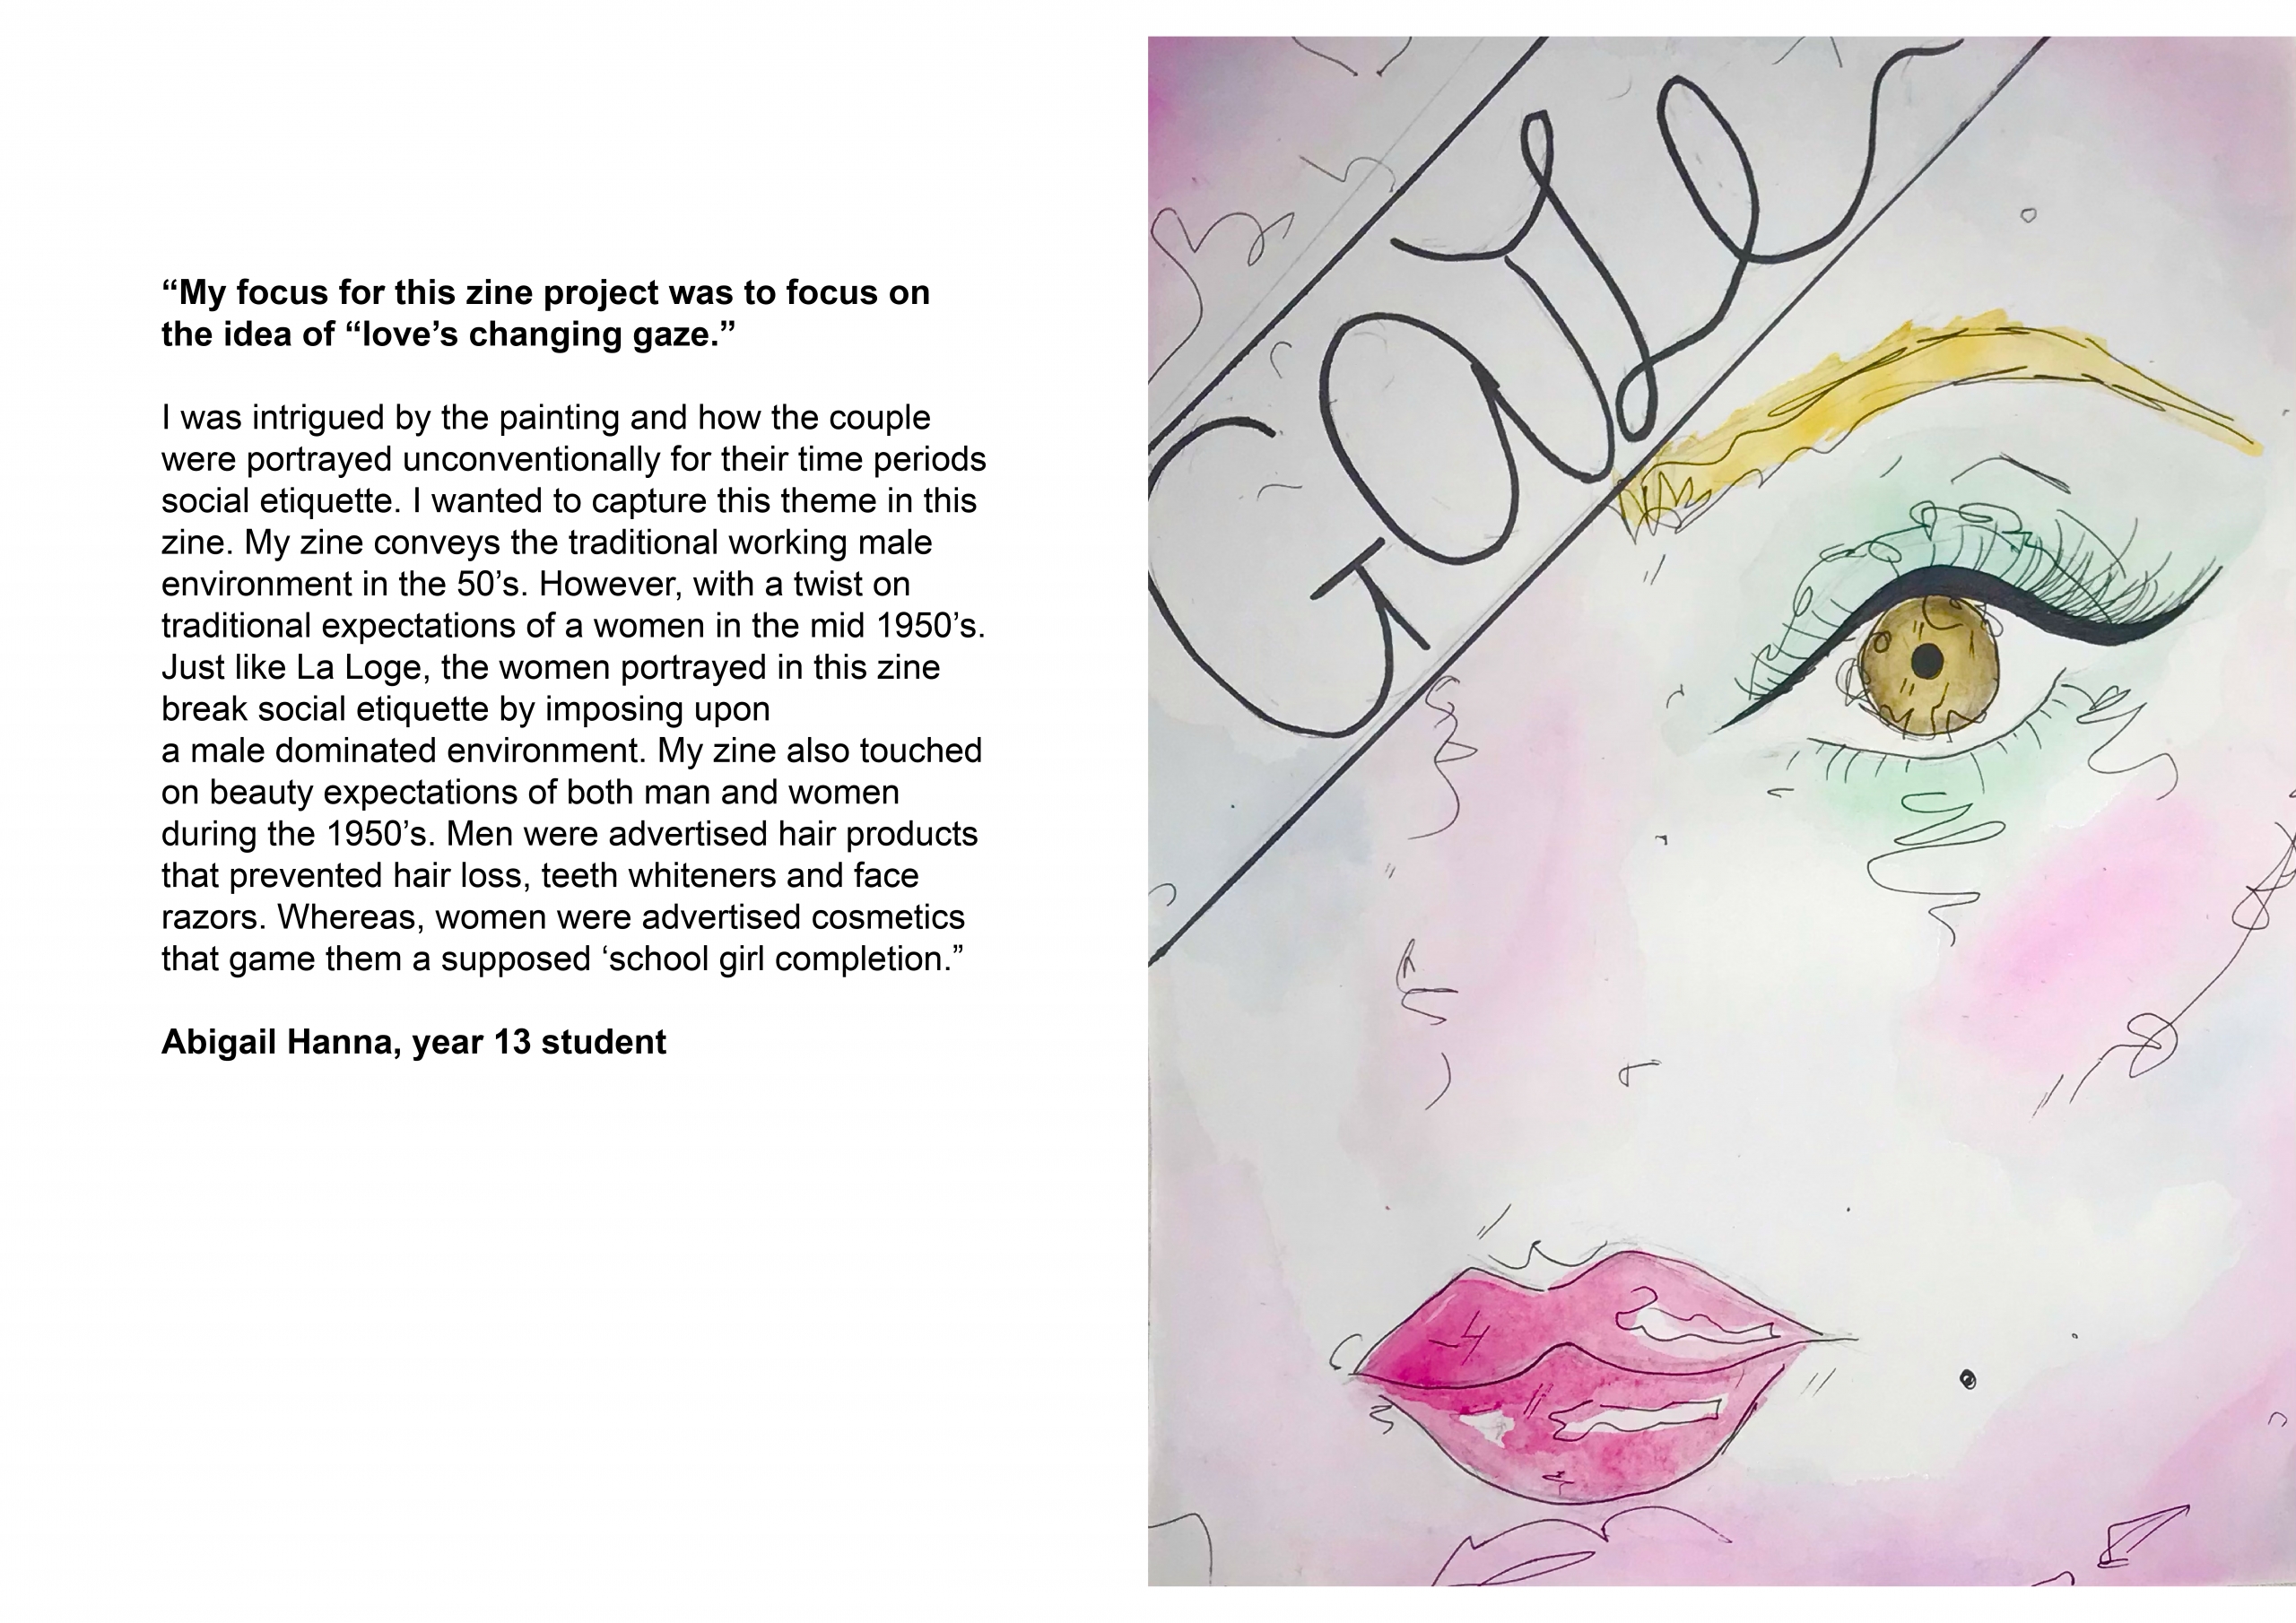 “My focus for this zine project was to focus on
the idea of “love’s changing gaze.”
I was intrigued by the painting and how the couple
were portrayed unconventionally for their time periods
social etiquette. I wanted to capture this theme in this
zine. My zine conveys the traditional working male
environment in the 50’s. However, with a twist on
traditional expectations of a women in the mid 1950’s.
Just like La Loge, the women portrayed in this zine
break social etiquette by imposing upon
a male dominated environment. My zine also touched
on beauty expectations of both man and women
during the 1950’s. Men were advertised hair products
that prevented hair loss, teeth whiteners and face
razors. Whereas, women were advertised cosmetics
that game them a supposed ‘school girl completion.”
Abigail Hanna, year 13 student
Gaze